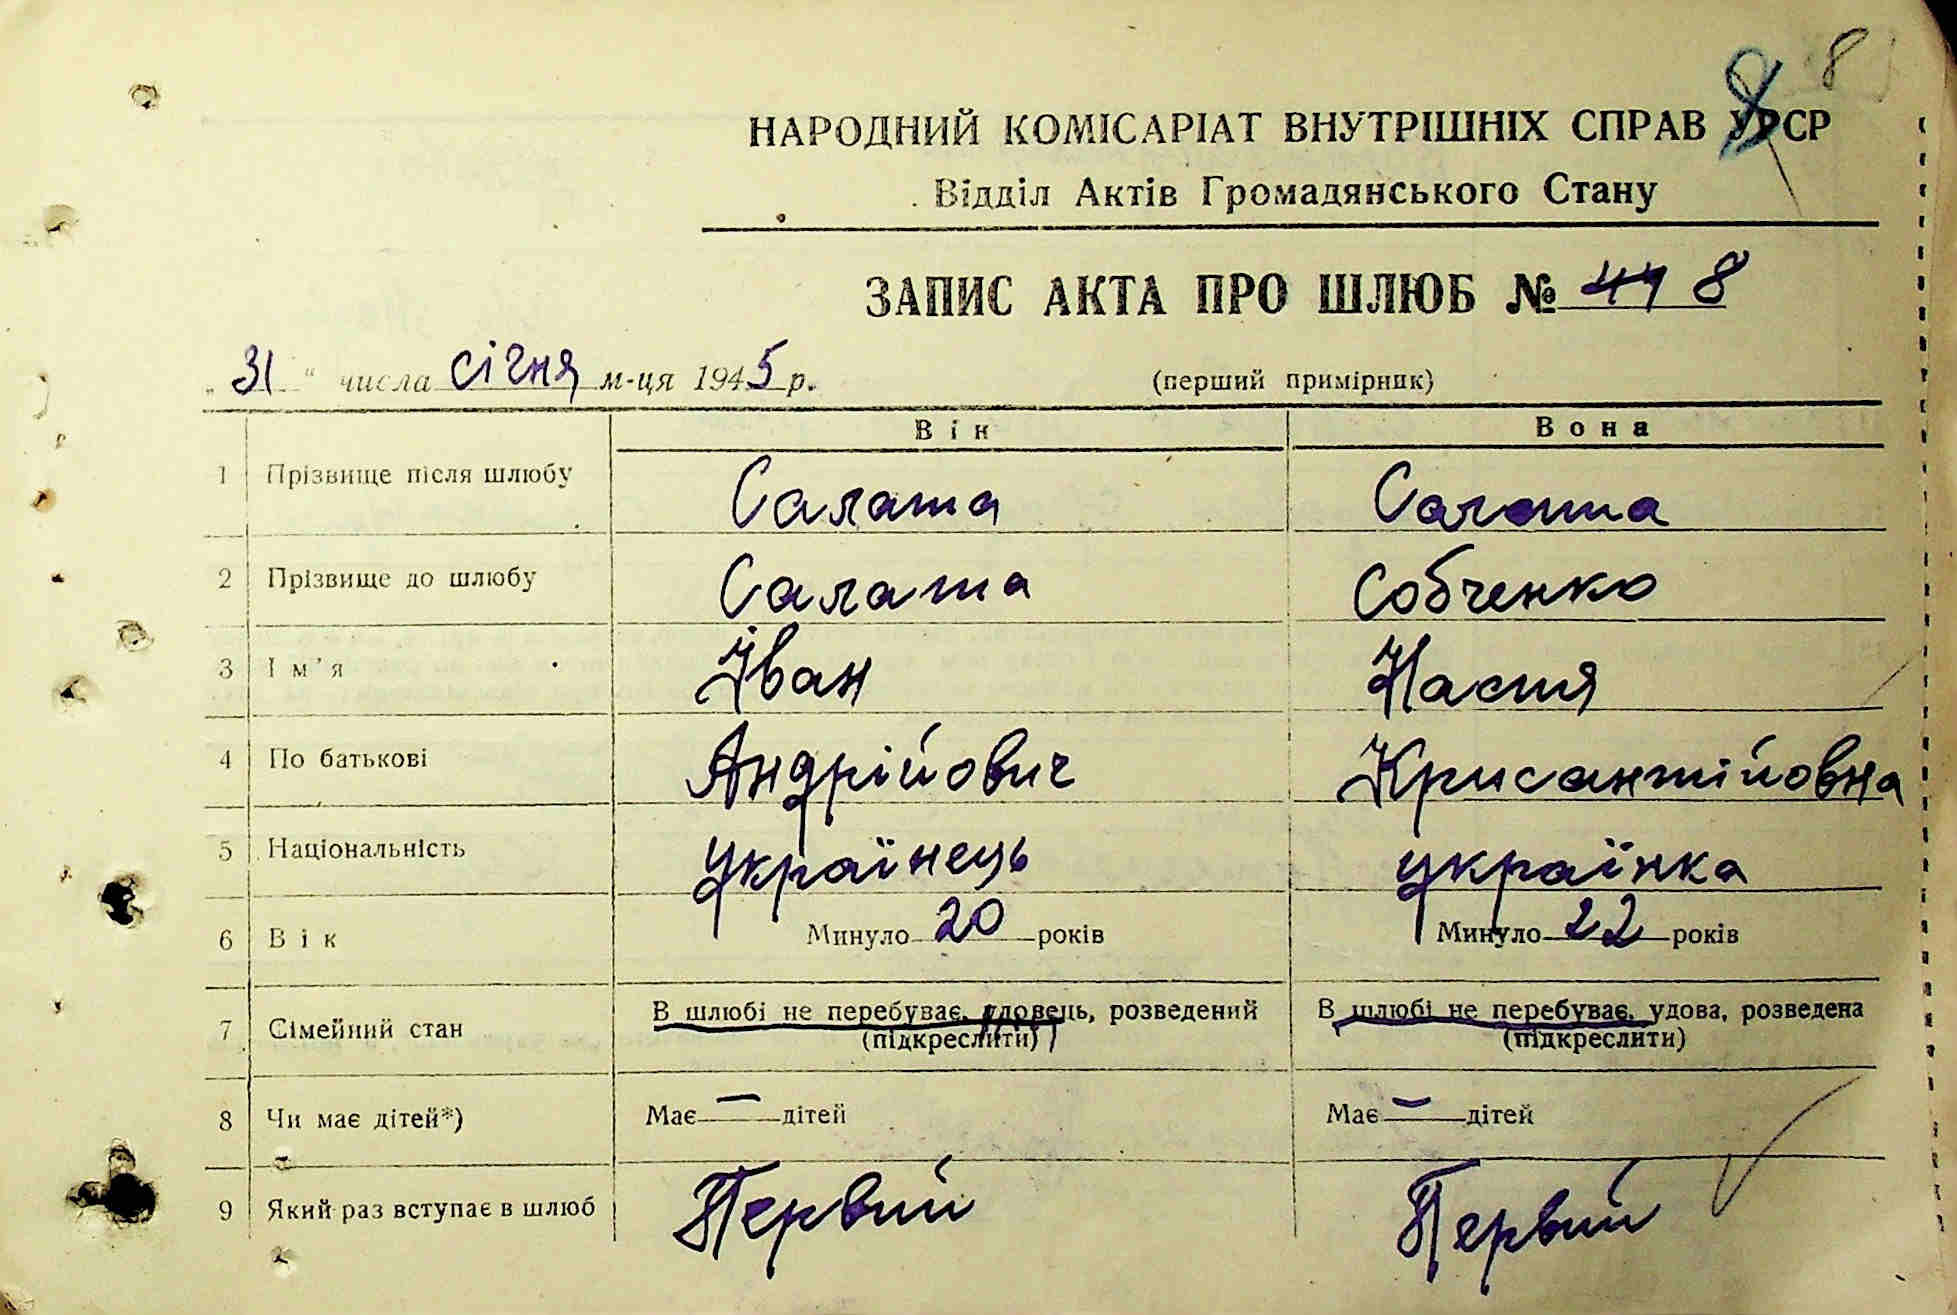 8 8
НАРОДНИЙ КОМІСАРІАТ ВНУТРІШНІХ СПРАВ УРСР
Відділ Актів Громадянського Стану
ЗАПИС АКТА ПРО ШЛЮБ № 8
„31“ числа січня м-ця 1945 р. (перший примірник)
Він Вона
1 Прізвище після шлюбу Салата Салата
2 Прізвище до шлюбу Салата Собченко
3 Ім’я Іван Настя
4 По батькові Андрійович Крисантійовна
5 Національність українець українка
6 Вік Минуло 20 років Минуло 22 років
7 Сімейний стан В шлюбі не перебуває, удовець, розведений В шлюбі не перебуває, удова, розведена
(підкреслити) (підкреслити)
8 Чи має дітей*) Має — дітей Має — дітей
9 Який раз вступає в шлюб Первий Первий